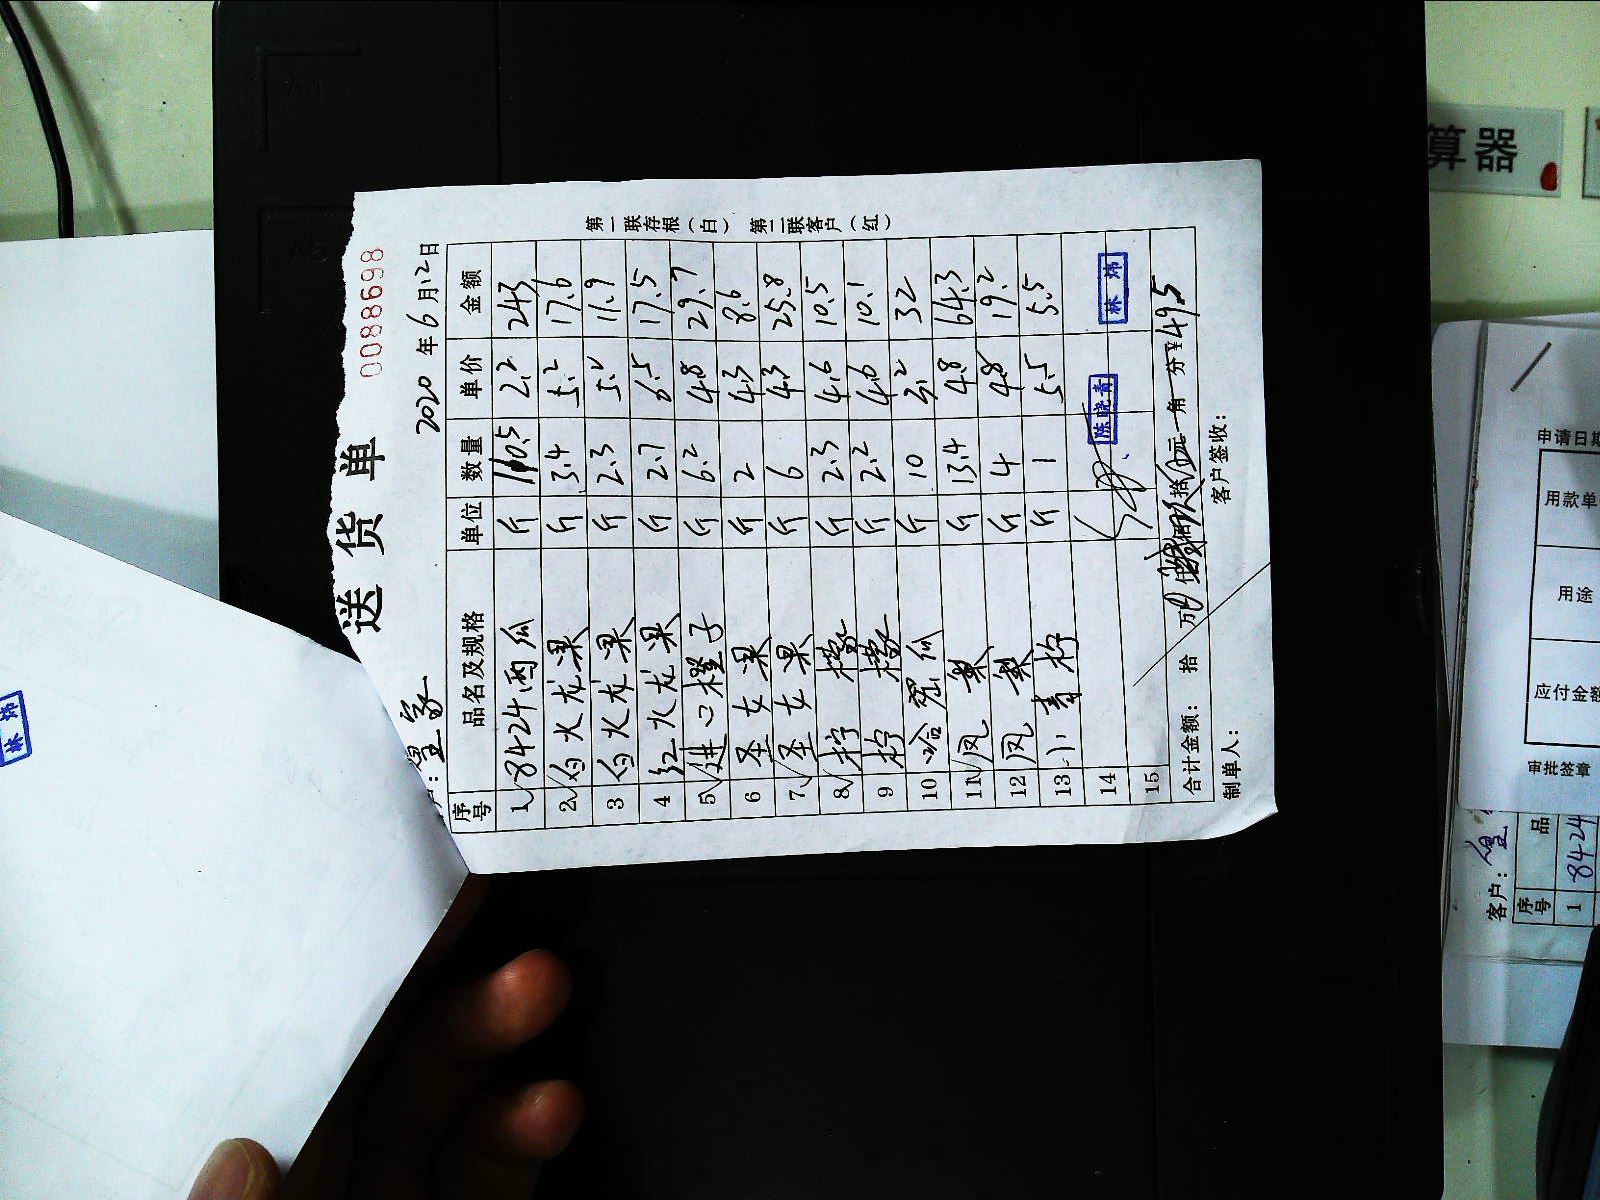 送货单
0088698
2020年6月12日
序号 品名及规格 单位 数量 单价 金额
1 8424西瓜 斤 110.5 2.2 243
2 白火龙果 斤 3.4 5.2 17.6
3 白火龙果 斤 2.3 5.2 11.9
4 红火龙果 斤 2.7 6.5 17.5
5 进口橙子 斤 6.2 4.8 29.7
6 圣女果 斤 2 4.3 8.6
7 圣女果 斤 6 4.3 25.8
8 柠檬 斤 2.3 4.6 10.5
9 柠檬 斤 2.2 4.6 10.1
10 哈蜜瓜 斤 10 3.2 32
11 凤梨 斤 13.4 4.8 64.3
12 凤梨 斤 4 4.8 19.2
13 小青柠 斤 1 5.5 5.5
14 陈晓青 林炜
15
合计金额: 拾 万 仟 佰 玖 拾 元 角 分 ¥495
制单人: 客户签收:
第一联存根(白) 第二联客户(红)
林炜
算器
申请日期
用款单
用途
应付金额
审批签章
客户:
序号 品
1 8424